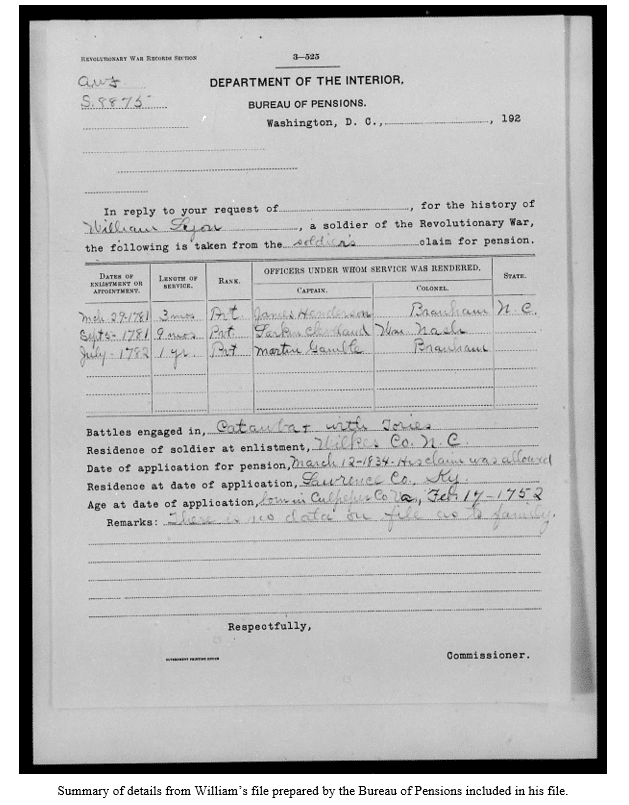 REVOLUTIONARY WAR RECORDS SECTION
3—525
S.8875
DEPARTMENT OF THE INTERIOR,
BUREAU OF PENSIONS.
Washington, D. C., , 192
In reply to your request of , for the history of
William Lyon , a soldier of the Revolutionary War,
the following is taken from the soldiers claim for pension.
DATES OF ENLISTMENT OR APPOINTMENT. LENGTH OF SERVICE. RANK. OFFICERS UNDER WHOM SERVICE WAS RENDERED. STATE.
CAPTAIN. COLONEL.
Mch 29-1781 3 mos Prt James Henderson Branham N. C.
Septs- 1781 9 mos Prt. Larkin Cleveland Wm. Nash
July - 1782 1 yr. Prt Martin Gamble Branham
Battles engaged in, Catawba + with Tories
Residence of soldier at enlistment, Wilkes Co. N. C.
Date of application for pension, March 12-1834. His claim was allowed
Residence at date of application, Lawrence Co., Ky.
Age at date of application, born in Culpeper Co Va, Feb. 17-1752
Remarks: There is no data on file as to family.
Respectfully,
GOVERNMENT PRINTING OFFICE
Commissioner.
Summary of details from William’s file prepared by the Bureau of Pensions included in his file.